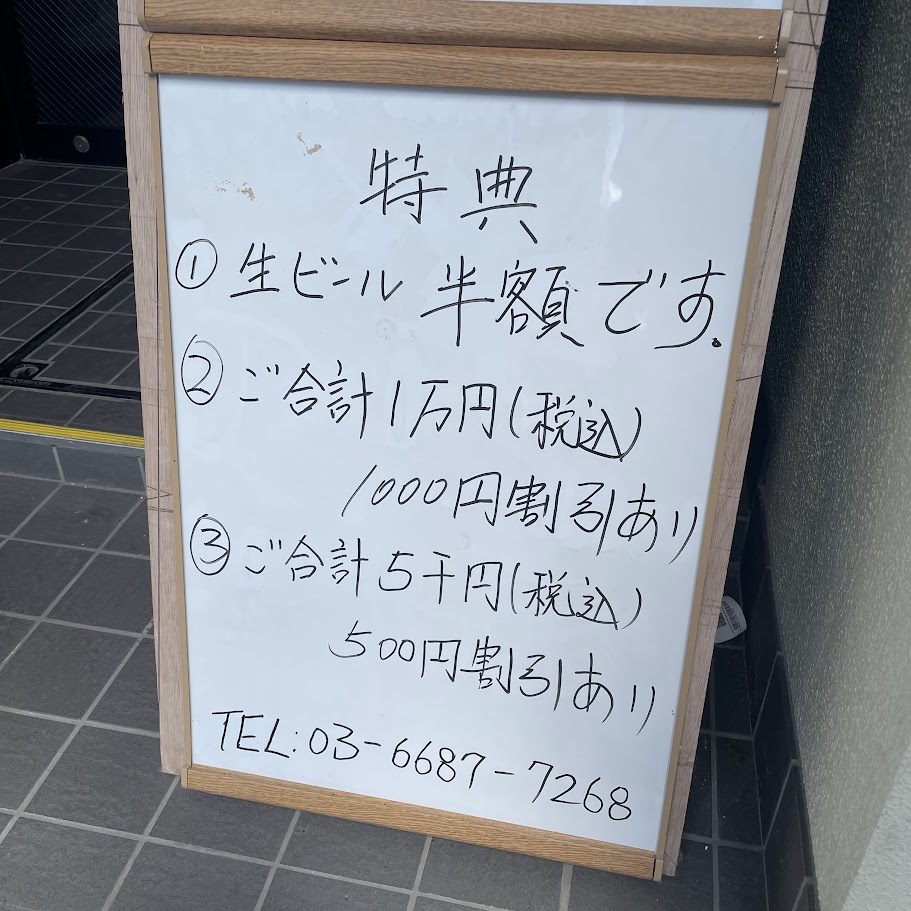 特典
① 生ビール 半額です.
② ご合計1万円(税込)
1000円割引あり
③ ご合計5千円(税込)
500円割引あり
TEL:03-6687-7268